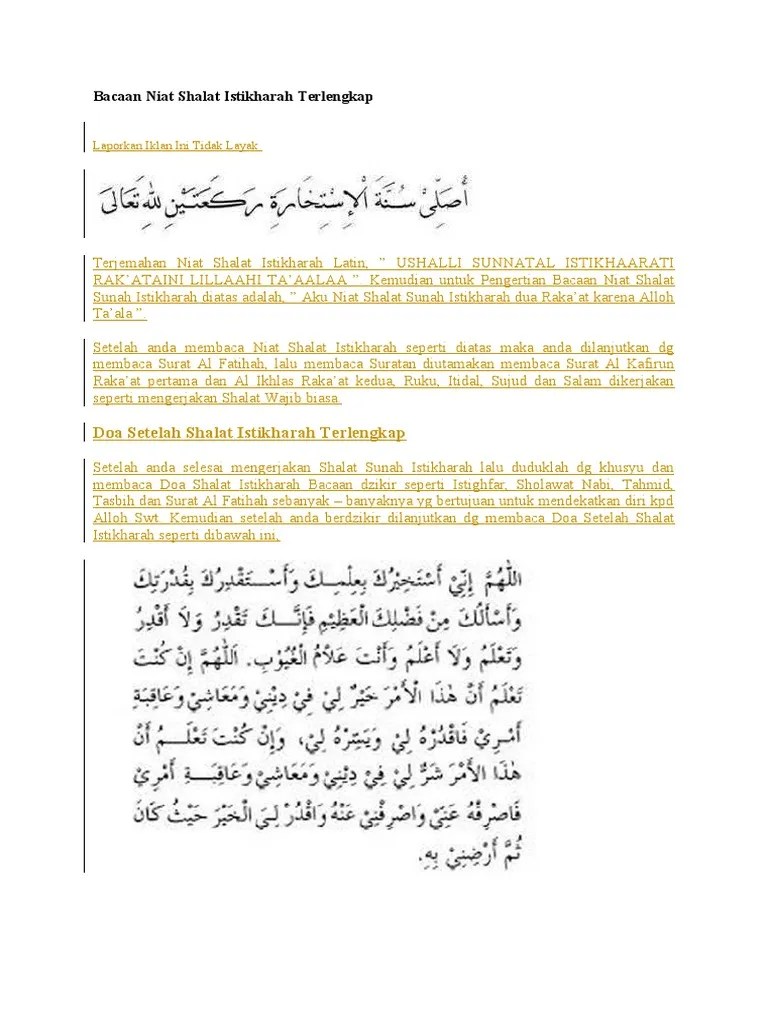 Bacaan Niat Shalat Istikharah Terlengkap
Laporkan Iklan Ini Tidak Layak
أُصَلِّىْ سُنَّةَ اْلاِسْتِخَارَةِ رَكْعَتَيْنِ لِلّٰهِ تَعَالَىٰ
Terjemahan Niat Shalat Istikharah Latin, ” USHALLI SUNNATAL ISTIKHAARATI
RAK’ATAINI LILLAAHI TA’AALAA ”. Kemudian untuk Pengertian Bacaan Niat Shalat
Sunah Istikharah diatas adalah, ” Aku Niat Shalat Sunah Istikharah dua Raka’at karena Alloh
Ta’ala ”.
Setelah anda membaca Niat Shalat Istikharah seperti diatas maka anda dilanjutkan dg
membaca Surat Al Fatihah, lalu membaca Suratan diutamakan membaca Surat Al Kafirun
Raka’at pertama dan Al Ikhlas Raka’at kedua, Ruku, Itidal, Sujud dan Salam dikerjakan
seperti mengerjakan Shalat Wajib biasa.
Doa Setelah Shalat Istikharah Terlengkap
Setelah anda selesai mengerjakan Shalat Sunah Istikharah lalu duduklah dg khusyu dan
membaca Doa Shalat Istikharah Bacaan dzikir seperti Istighfar, Sholawat Nabi, Tahmid,
Tasbih dan Surat Al Fatihah sebanyak – banyaknya yg bertujuan untuk mendekatkan diri kpd
Alloh Swt. Kemudian setelah anda berdzikir dilanjutkan dg membaca Doa Setelah Shalat
Istikharah seperti dibawah ini,
اَللّٰهُمَّ إِنِّيْ أَسْتَخِيْرُكَ بِعِلْمِكَ وَأَسْتَقْدِرُكَ بِقُدْرَتِكَ
وَأَسْأَلُكَ مِنْ فَضْلِكَ الْعَظِيْمِ فَإِنَّكَ تَقْدِرُ وَلَا أَقْدِرُ
وَتَعْلَمُ وَلَا أَعْلَمُ وَأَنْتَ عَلَّامُ الْغُيُوْبِ. اَللّٰهُمَّ إِنْ كُنْتَ
تَعْلَمُ أَنَّ هٰذَا الْأَمْرَ خَيْرٌ لِيْ فِيْ دِيْنِيْ وَمَعَاشِيْ وَعَاقِبَةِ
أَمْرِيْ فَاقْدُرْهُ لِيْ وَيَسِّرْهُ لِيْ، وَإِنْ كُنْتَ تَعْلَمُ أَنَّ
هٰذَا الْأَمْرَ شَرٌّ لِيْ فِيْ دِيْنِيْ وَمَعَاشِيْ وَعَاقِبَةِ أَمْرِيْ
فَاصْرِفْهُ عَنِّيْ وَاصْرِفْنِيْ عَنْهُ وَاقْدُرْ لِيَ الْخَيْرَ حَيْثُ كَانَ
ثُمَّ أَرْضِنِيْ بِهِ.